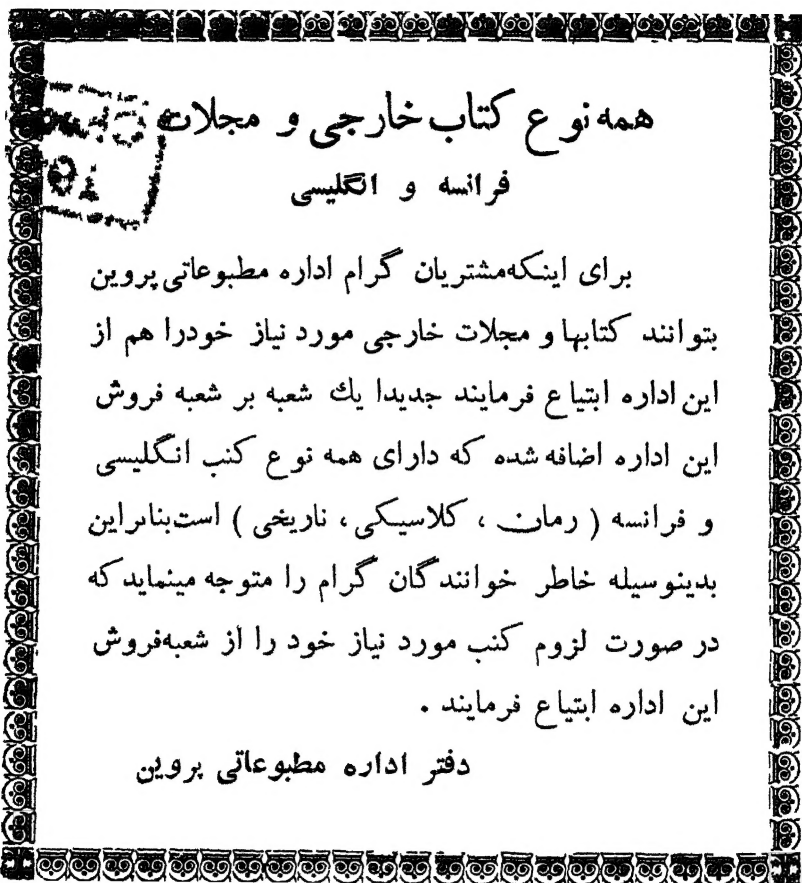 همه نوع کتاب خارجی و مجلات
فرانسه و انگلیسی
برای اینکه مشتریان گرام اداره مطبوعاتی پروین
بتوانند کتابها و مجلات خارجی مورد نیاز خودرا هم از
این اداره ابتیاع فرمایند جدیدا یك شعبه بر شعبه فروش
این اداره اضافه شده که دارای همه نوع کتب انگلیسی
و فرانسه ( رمان ، کلاسیکی ، تاریخی ) است بنابراین
بدینوسیله خاطر خوانندگان گرام را متوجه مینماید که
در صورت لزوم کتب مورد نیاز خود را از شعبه فروش
این اداره ابتیاع فرمایند .
دفتر اداره مطبوعاتی پروین